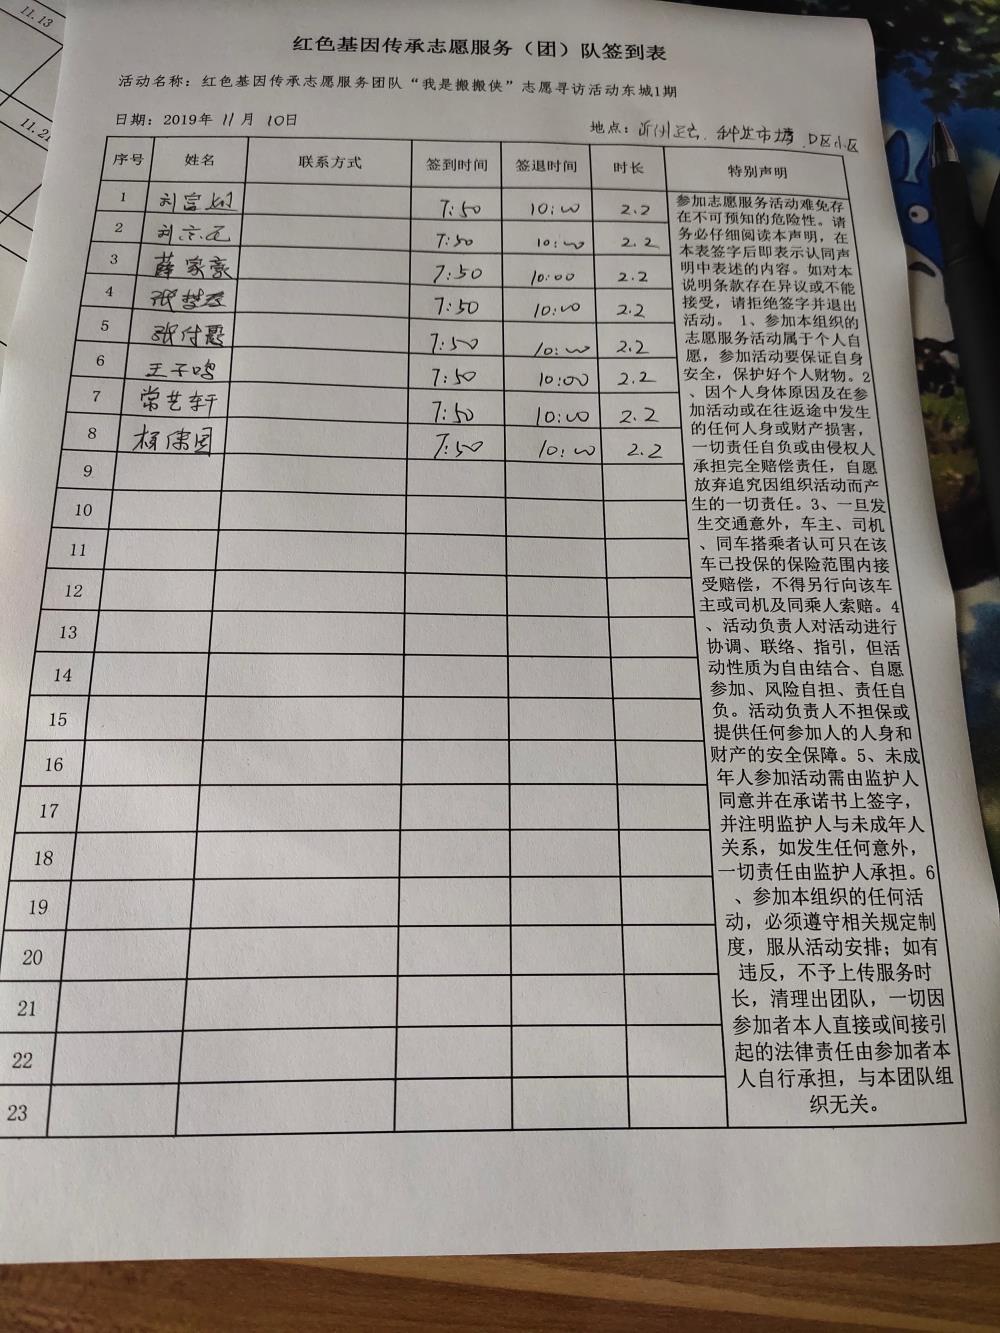 11.13
11.21
红色基因传承志愿服务（团）队签到表
活动名称：红色基因传承志愿服务团队“我是搬搬侠”志愿寻访活动东城1期
日期：2019年 11月 10日
地点：沂州 D区小区
序号 姓名 联系方式 签到时间 签退时间 时长 特别声明
1 刘富 7:50 10:00 2.2
2 刘 7:50 10:00 2.2
3 薛家豪 7:50 10:00 2.2
4 张梦 7:50 10:00 2.2
5 张付霞 7:50 10:00 2.2
6 王子鸣 7:50 10:00 2.2
7 常艺轩 7:50 10:00 2.2
8 杨伟国 7:50 10:00 2.2
9
10
11
12
13
14
15
16
17
18
19
20
21
22
23
参加志愿服务活动难免存
在不可预知的危险性。请
务必仔细阅读本声明，在
本表签字后即表示认同声
明中表述的内容。如对本
说明条款存在异议或不能
接受，请拒绝签字并退出
活动。 1、参加本组织的
志愿服务活动属于个人自
愿，参加活动要保证自身
安全，保护好个人财物。2
、因个人身体原因及在参
加活动或在往返途中发生
的任何人身或财产损害，
一切责任自负或由侵权人
承担完全赔偿责任，自愿
放弃追究因组织活动而产
生的一切责任。3、一旦发
生交通意外，车主、司机
、同车搭乘者认可只在该
车已投保的保险范围内接
受赔偿，不得另行向该车
主或司机及同乘人索赔。4
、活动负责人对活动进行
协调、联络、指引，但活
动性质为自由结合、自愿
参加、风险自担、责任自
负。活动负责人不担保或
提供任何参加人的人身和
财产的安全保障。5、未成
年人参加活动需由监护人
同意并在承诺书上签字，
并注明监护人与未成年人
关系，如发生任何意外，
一切责任由监护人承担。6
、参加本组织的任何活
动，必须遵守相关规定制
度，服从活动安排；如有
违反，不予上传服务时
长，清理出团队，一切因
参加者本人直接或间接引
起的法律责任由参加者本
人自行承担，与本团队组
织无关。